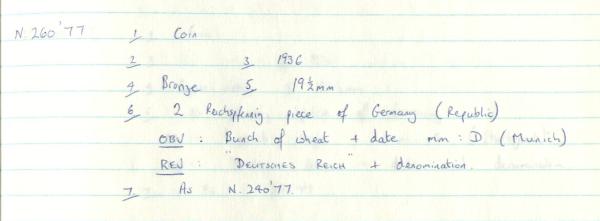 N. 260'77 1 Coin
2 3 1936
4 Bronze 5 19½mm
6 2 Reichspfennig piece of Germany (Republic)
OBV : Bunch of wheat + date mm : D (Munich)
REV : "DEUTSCHES REICH" + denomination.
7. As N. 240'77.